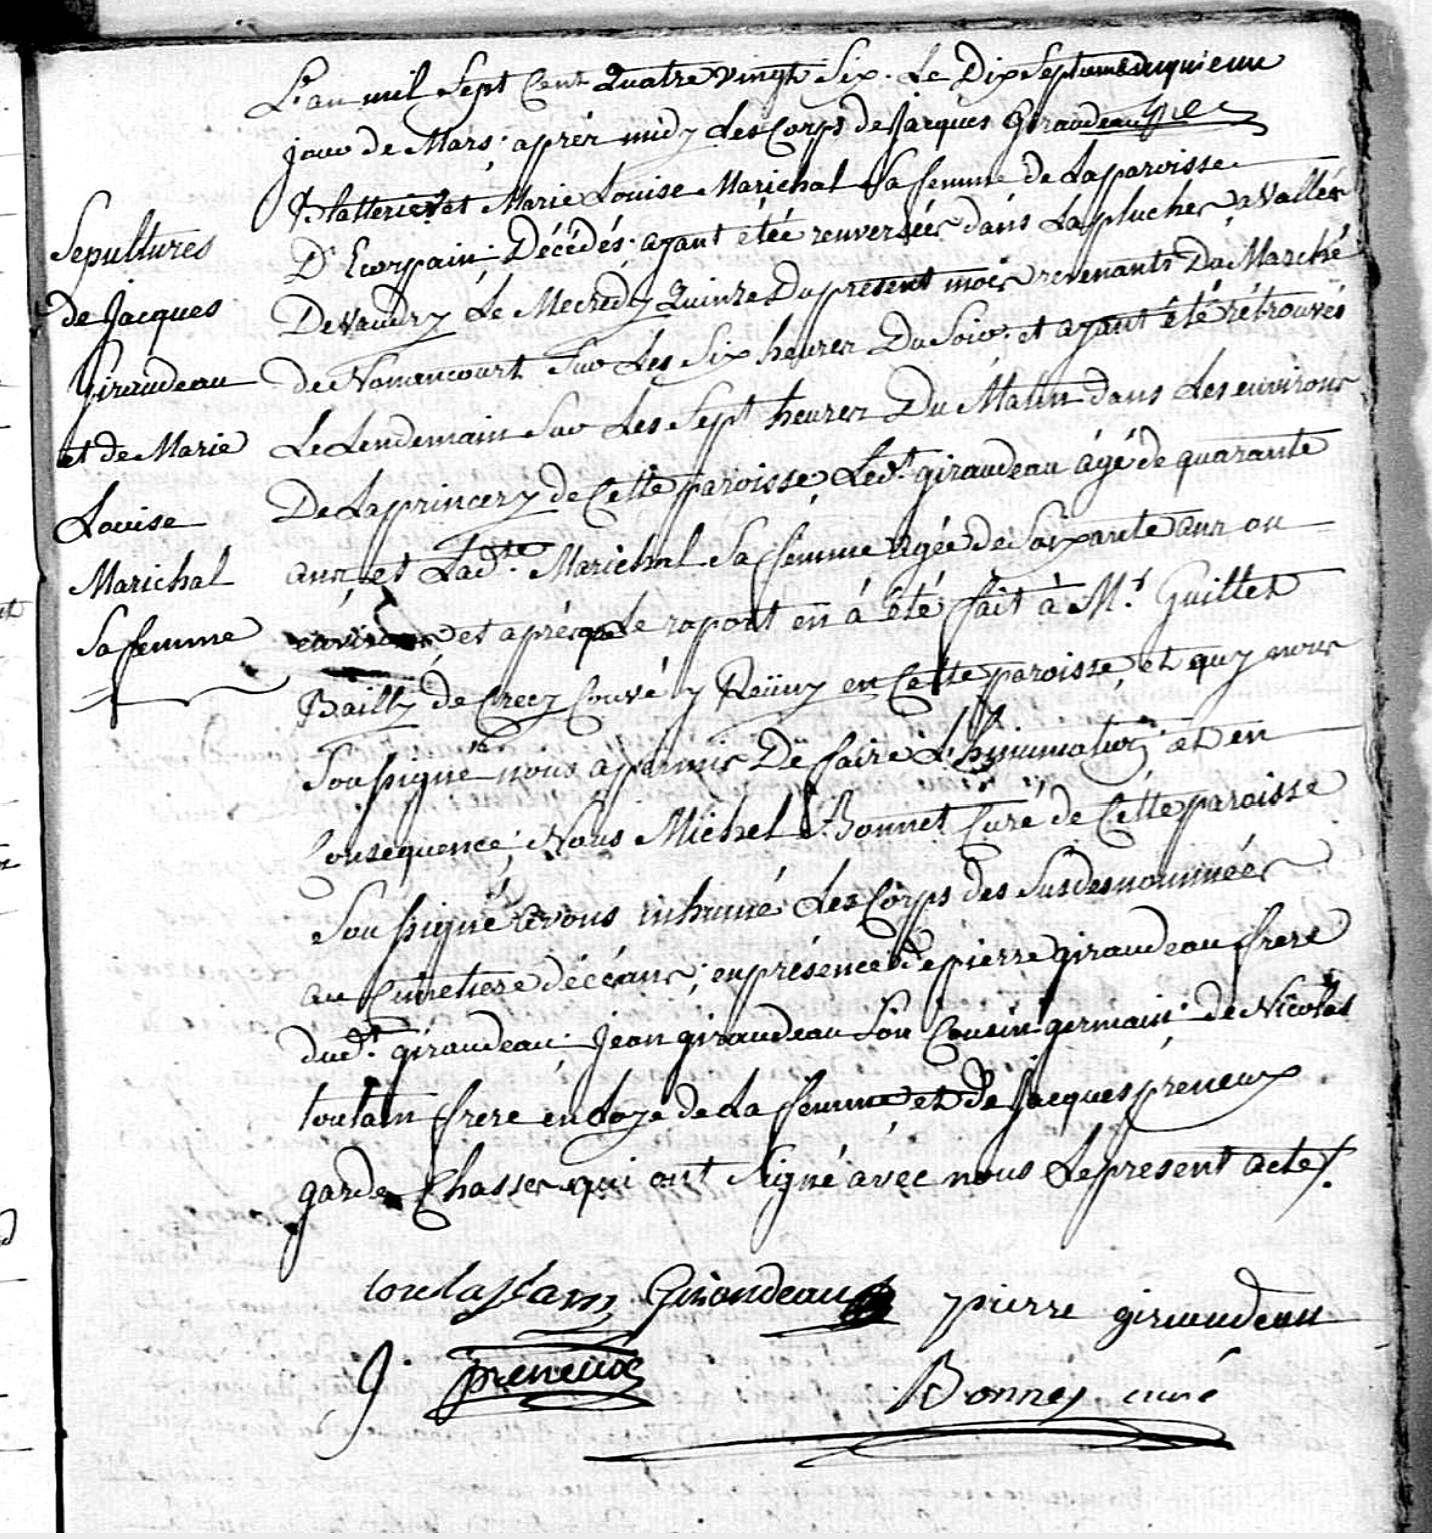 Sepultures
de Jacques
Giraudeau
et de Marie
Louise
Marichal
Sa femme
L'an mil Sept Cent Quatre vingt Six. Le Dix Septieme
jour de Mars; après midy Les Corps de Jacques Giraudeau
Blattier et Marie Louise Marichal Sa femme de La paroisse
D'Ecorpain; Décédés; ayant étée renversées dans La
De Vaudry Le Mecredy Quinze Du présent mois revenants Du Marché
de Nonancourt Sur Les Six heures Du Soir; et ayant été rétrouvés
Le Lendemain Sur Les Sept heures Du Matin dans Les environs
De La princery de Cette paroisse, Ledt. giraudeau âgé de quarante
ans, et Ladte. Marichal Sa femme agée de Soixante ans ou
environ et après que Le raport en à été fait à Mr. Guillet
Bailly de Crecy Couvé y Reüny en Cette paroisse, et quy nous
Soussigné nous a permis De faire L'hinumation; et en
Consequence; Nous Michel Bonnet Curé de Cette paroisse
Soussigné avons inhumé Les Corps des Susdesnommées
au Cimetiere décéans; en présence de pierre giraudeau frere
dudt. giraudeau; Jean giraudeau Son Cousin germain; de Nicolas
toutain frere en Loye de La femme et de Jacques preneux
garde Chasses qui ont Signé avec nous Le present acte /.
Giraudeau pierre giraudeau
J. preneux
Bonnet curé